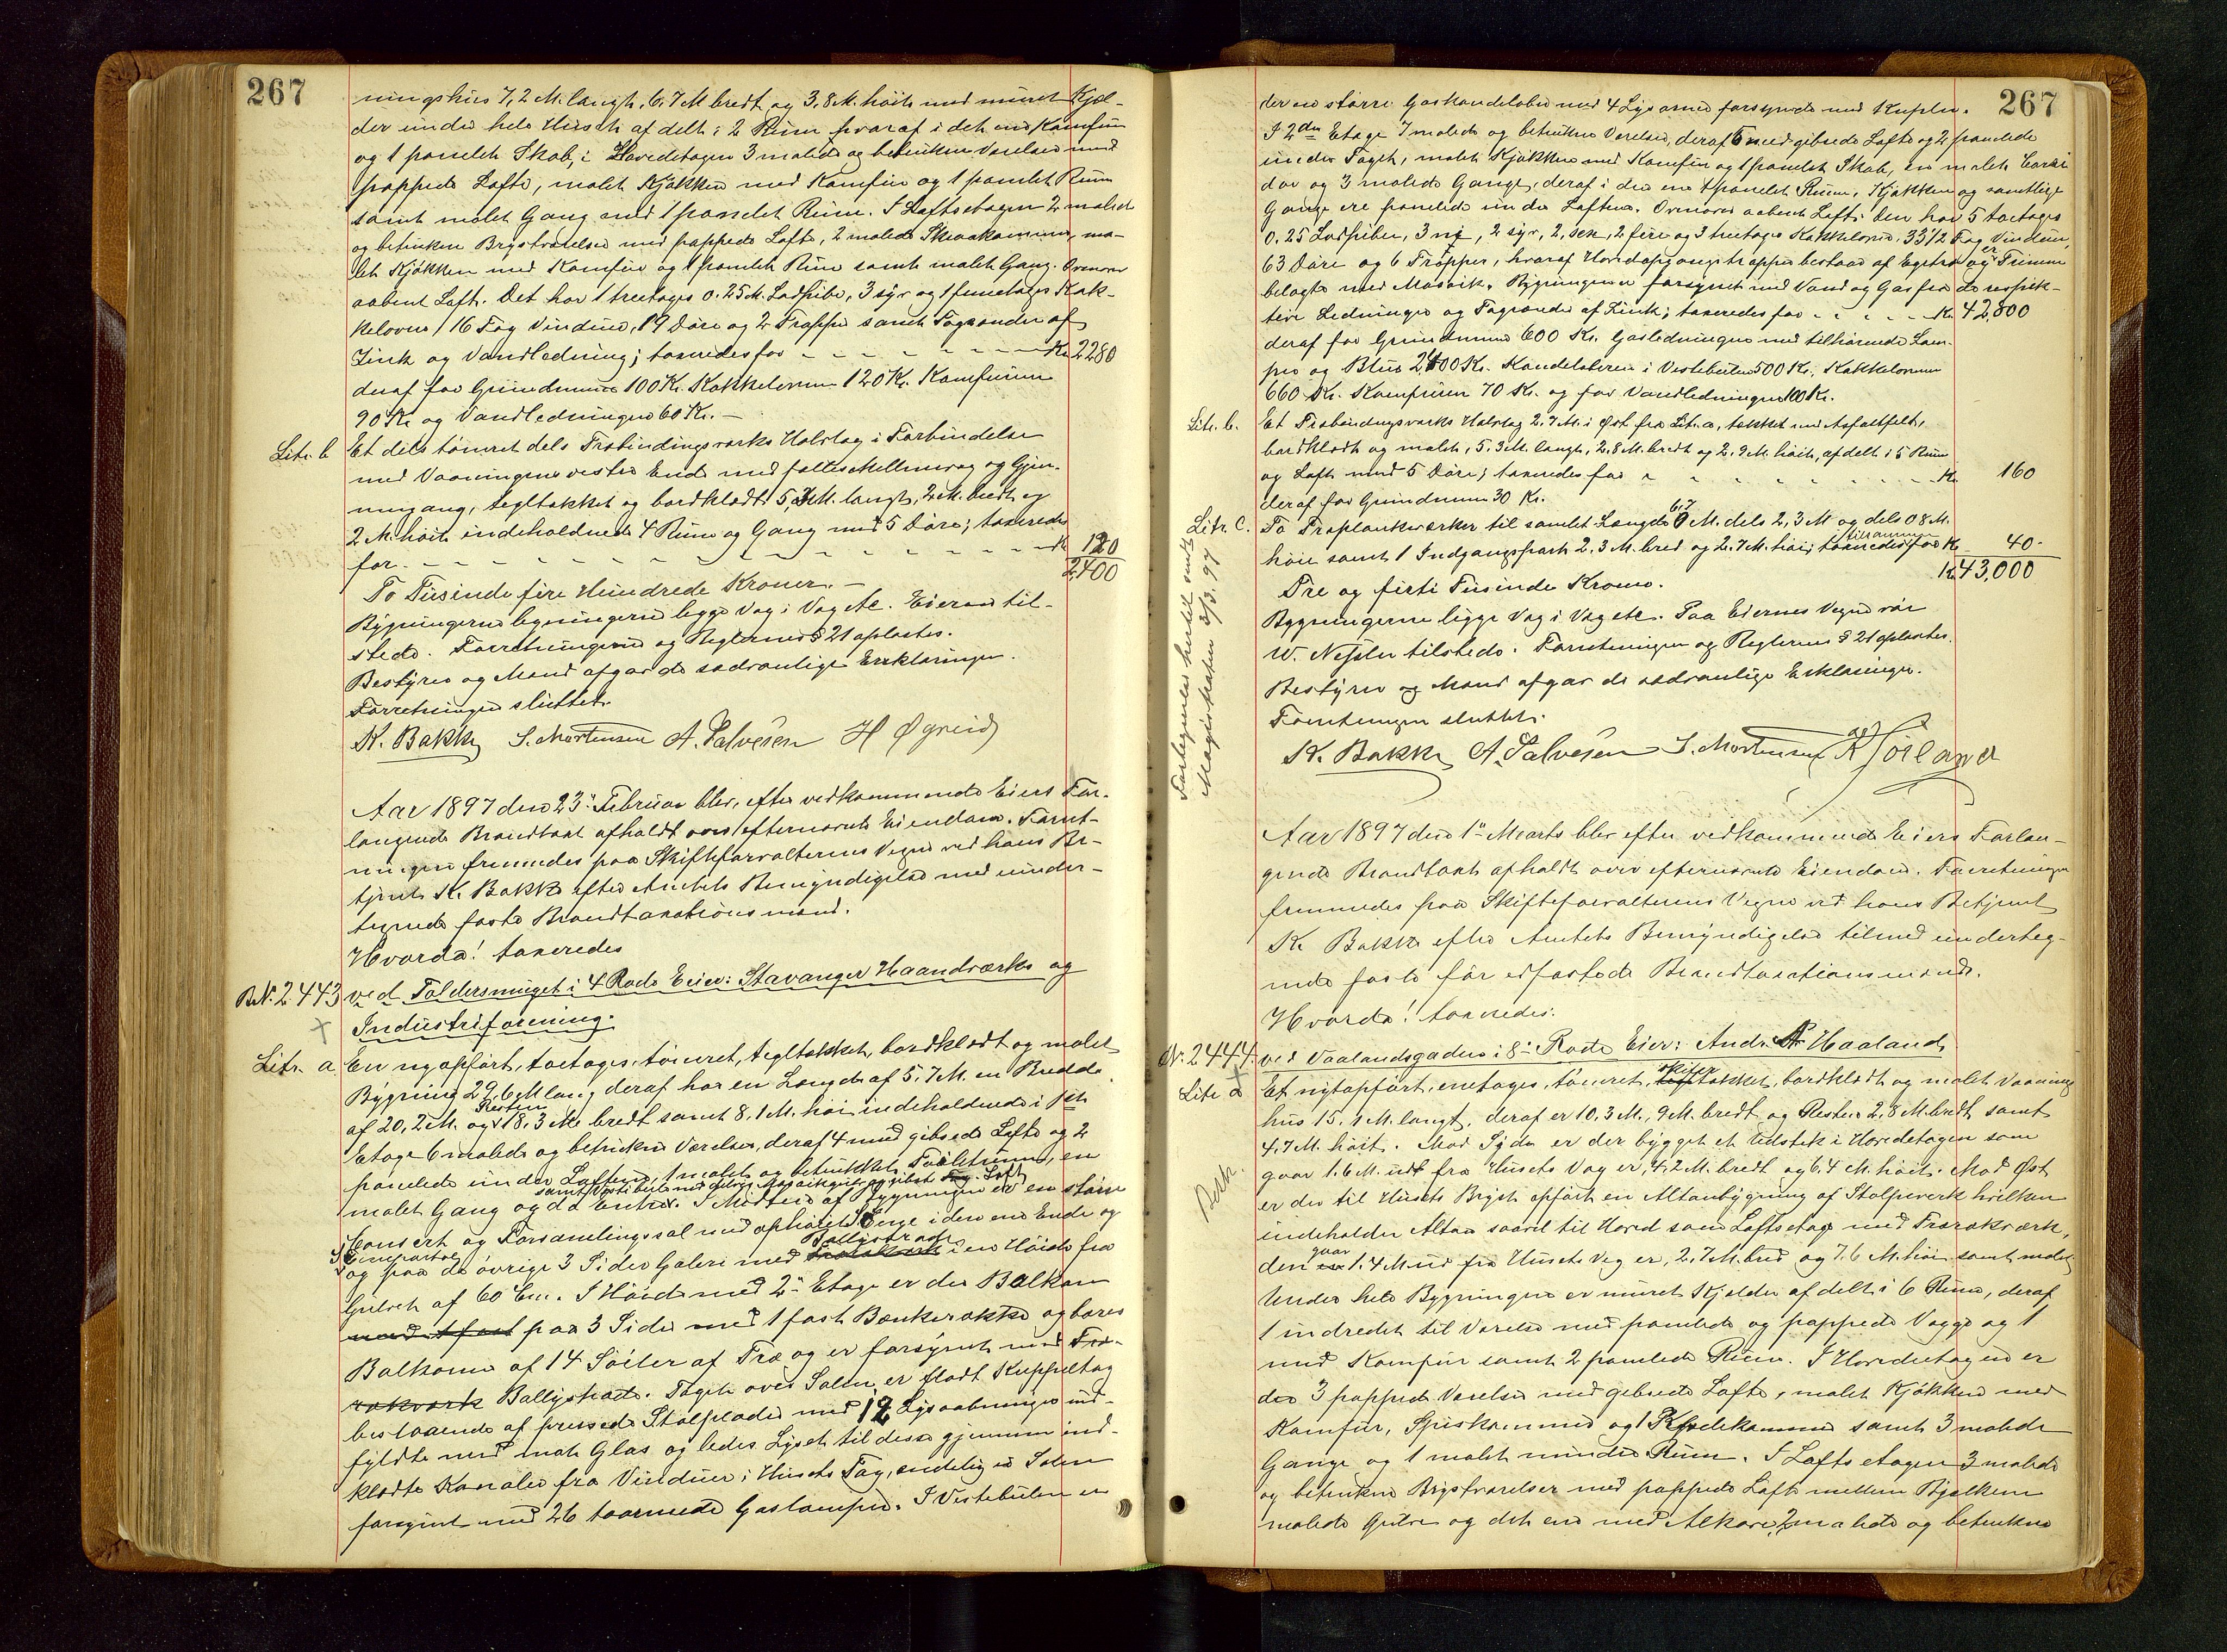 267
ningshus 7,2 M. langt, 6,7 M bredt og 3,8 M. høit med muret Kjæl-
der under hele Huset afdelt i 2 Rum hvoraf i det ene Komfur
og 1 panelet Skab, i Hovedetagen 3 malede og betrukne Værelser med
pappede Lofte, malet Kjøkken med Komfur og 1 panelet Rum
samt malet Gang med 1 panelet Rum. I Loftsetagen 2 malede
og betrukne Brystværelser med pappede Lofte, 2 malede Skraakammere, ma-
let Kjøkken med Komfur og 1 panelet Rum samt malet Gang. Ovenover
aabent Loft. Det har 1 treetages 0.25 M. Ladpibe, 3 syv og 1 femetages Kak-
kelovne, 16 Fag Vinduer, 19 Døre og 2 Trapper samt Tagrender af
Zink og Vandledning; taxeredes for - - - - - - - - Kr. 2280
deraf for Grundmuren 100 Kr. Kakkelovnene 120 Kr. Komfurene
90 Kr og Vandledningen 60 Kr. -
Litr. b Et dels tømret dels Træbindingsværks Halvtag i Forbindelse
med Vaaningens vestre Ende med fælles Mellemvæg og Gjen-
nemgang, tegltækket og bordklædt 5,3 M. langt, 2 M. bredt og
2 M. høit indeholdende 4 Rum og Gang med 5 Døre; taxeredes
for - - - - - - - - - - - Kr 120
2,400
To Tusinde fire Hundrede Kroner. -
Bygningerne bygningerne ligge Væg i Væg etc. Eieren til-
stede. Forretningen og Reglernes § 21 oplæstes.
Bestyrer og Mænd afgav de sædvanlige Erklæringer.
Forretningen sluttet.
K. Bakke S. Mortensen A. Salvesen H Øgreid
Aar 1897 den 23" Februar blev, efter vedkommende Eiers For-
langende Brandtaxt afholdt over efternævnte Eiendom. Forret-
ningen fremmedes paa Skifteforvalterens Vegne ved hans Be-
tjent K. Bakke efter Amtets Bemyndigelse med under-
tegnede faste Brandtaxationsmænd.
Hvorda! taxeredes
BN. 2443 ved Toldersmuget i 4 Rode Eier: Stavanger Haandværks og
Industriforening.
Litr. a En nyopført, toetages, tømret, tegltækket, bordklædt og malet
Bygning 29,6 M lang deraf har en Længde af 5,7 M. en Bredde
af 20,2 M. og Resten 18,3 M. bredt samt 8.1 M. høi indeholdende i 1ste
Etage 6 malede og betrukne Værelser, deraf 4 med gibsede Lofte og 2
panelede under Loftene, 1 malet og betrukket Toiletrum, en
samt Vestibule med Mosaikgulv og gibset Loft
malet Gang og do Entré. I Midten af Bygningen er en større
Consert og Forsamlingssal med ophøiet Scene i den ene Ende og
og paa de øvrige 3 Sider Galeri med Ballystrade i en Høide fra
Gulvet af 60 Cm. I Høide med 2" Etage er der Balkon
med 1 fast paa 3 Sider med 1 fast Bænkerække og bæres
Balkonen af 14 Søiler af Træ og er forsynet med Træ-
rækværk Ballystrade. Taget over Salen er fladt Kuppeltag
bestaaende af pressede Staalplader med 12 Lysaabninger ud-
fyldte med mat Glas og ledes Lyset til disse gjennem ind-
klædte Kanaler fra Vinduer i Husets Tag, endelig er Salen
forsynet med 26 toarmede Gaslamper. I Vestibulen er
267
der en større Gaskandelaber med 4 Lysarme forsynede med Kupler.
I 2den Etage 7 malede og betrukne Værelser, deraf 5 med gibsede Lofte og 2 panelede
under Taget, malet Kjøkken med Komfur og 1 panelet Skab, en malet Corri-
dor og 3 malede Gange, deraf i den ene 1 panelet Rum. Kjøkken og samtlige
Gange ere panelede under Loftene. Ovenover aabent Loft. Den har 5 toetages
0.25 Ladpiber, 3 ni, 2 syv, 2 sex, 2 fire og 3 treetages Kakkelovne, 33 1/2 Fag Vinduer,
63 Døre og 6 Trapper, hvoraf Hovedopgangstrappen bestaar af Egetræ og Trinene
belagte med Mosaik. Bygningen er forsynet med Vand og Gas fra de respek-
tive Ledninger og Tagrender af Zink; taxeredes for - - - - - Kr. 42,800
deraf for Grundmuren 600 Kr. Gasledningen med tilhørende Lam-
per og Blus 2400 Kr. Kandelaberen i Vestibulen 500 Kr. Kakkelovnene
660 Kr. Komfuren 70 Kr. og for Vandledningen 100 Kr.
Litr. b. Et Træbindingsværks Halvtag 2.7 M. i Øst fra Litr. a, tækket med Asfaltfelt,
bordklædt og malet, 5,3 M. langt, 2,8 M. bredt og 2,9 M. høit, afdelt i 5 Rum
og Loft med 5 Døre; taxeredes for - - - - - - - Kr. 160
deraf for Grundmuren 30 Kr.
Litr. C. To Træplankeværker til samlet Længde 67 M. dels 2,3 M og dels 0.8 M.
høie samt 1 Indgangsport 2.3 M. bred og 2.7 M. høi; tilsammen taxeredes for Kr 40.
Kr. 43,000
Tre og firti Tusinde Kroner.
Bygningerne ligge Væg i Væg etc. Paa Eiernes Vegne var
W. Nessler tilstede. Forretningen og Reglernes § 21 oplæstes.
Bestyrer og Mænd afgav de sædvanlige Erklæringer.
Forretningen sluttet.
K. Bakke A. Salvesen S. Mortensen
Magistraten 3/3. 97
Aar 1897 den 1" Marts blev efter vedkommende Eiers Forlan-
gende Brandtaxt afholdt over efternævnte Eiendom. Forretningen
fremmedes paa Skifteforvalterens Vegne ved hans Betjent
K. Bakke efter Amtets Bemyndigelse tilmed underteg-
nede faste før edfæstede Brandtaxationsmænd.
Hvorda! taxeredes.
N. 2444 ved Vaalandsgaden i 8" Rode Eier: Andr. A. Haaland,
Litr a Et nyopført, enetages, tømret, skifertækket, bordklædt og malet Vaanings
hus 15.1 M. langt, deraf er 10,3 M., 9 M. bredt og Resten 2,8 M. bredt samt
4,7 M. høit. Mod Syden er der bygget et Udstik i Hovedetagen som
gaar 1.6 M. udt fra Husets Væg er, 4,2 M. bredt og 6,4 M. høit. Mod Øst
er der til Husets Bryst opført en Altanbygning af Stolpeverk hvilken
indeholder Altan saavel til Hoved som Loftsetage med Trærækværk,
den gaar 1.4 M ud fra Husets Væg er, 2.7 M. bred og 7.6 M. høi samt malet
Under hele Bygningen er muret Kjælder afdelt i 6 Rum, deraf
1 indredet til Værelse med panelede og pappede Vægge og 1
med Komfur samt 2 panelede Rum. I Hovedetagen er
der 3 pappede Værelser med gibsede Lofte, malet Kjøkken med
Komfur, Spiskammer og 1 Klædekammer samt 3 malede
Gange og 1 malet mindre Rum. I Loftsetagen 3 malede
og betrukne Brystværelser med pappede Loft mellem Bjælkerne
malede Gulve og det ene med Alkove, 2 malede og betrukne